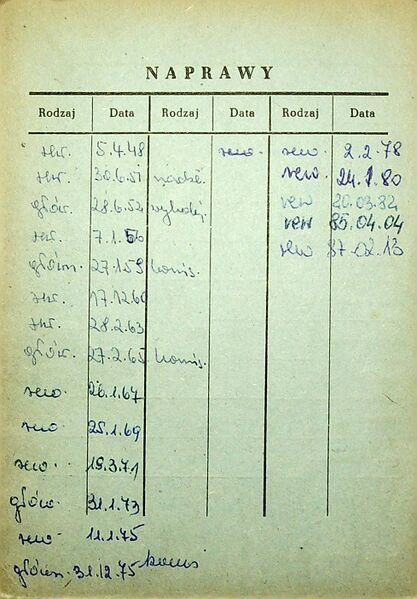 NAPRAWY
Rodzaj Data Rodzaj Data Rodzaj Data
5.4.48 rew. rew. 2.2.78
30.6.51 rew. 24.1.80
głów. 28.6.52 rew 20.03.82
7.1.56 rew 85.04.04
główn. 27.1.59 komis. rew 87.02.13
17.12.60
28.2.63
głów. 27.2.65 komis.
rew 26.1.67
rew. 25.1.69
rew. 19.3.71
głów. 31.1.73
rew. 11.1.75
główn. 31.12.75 komis